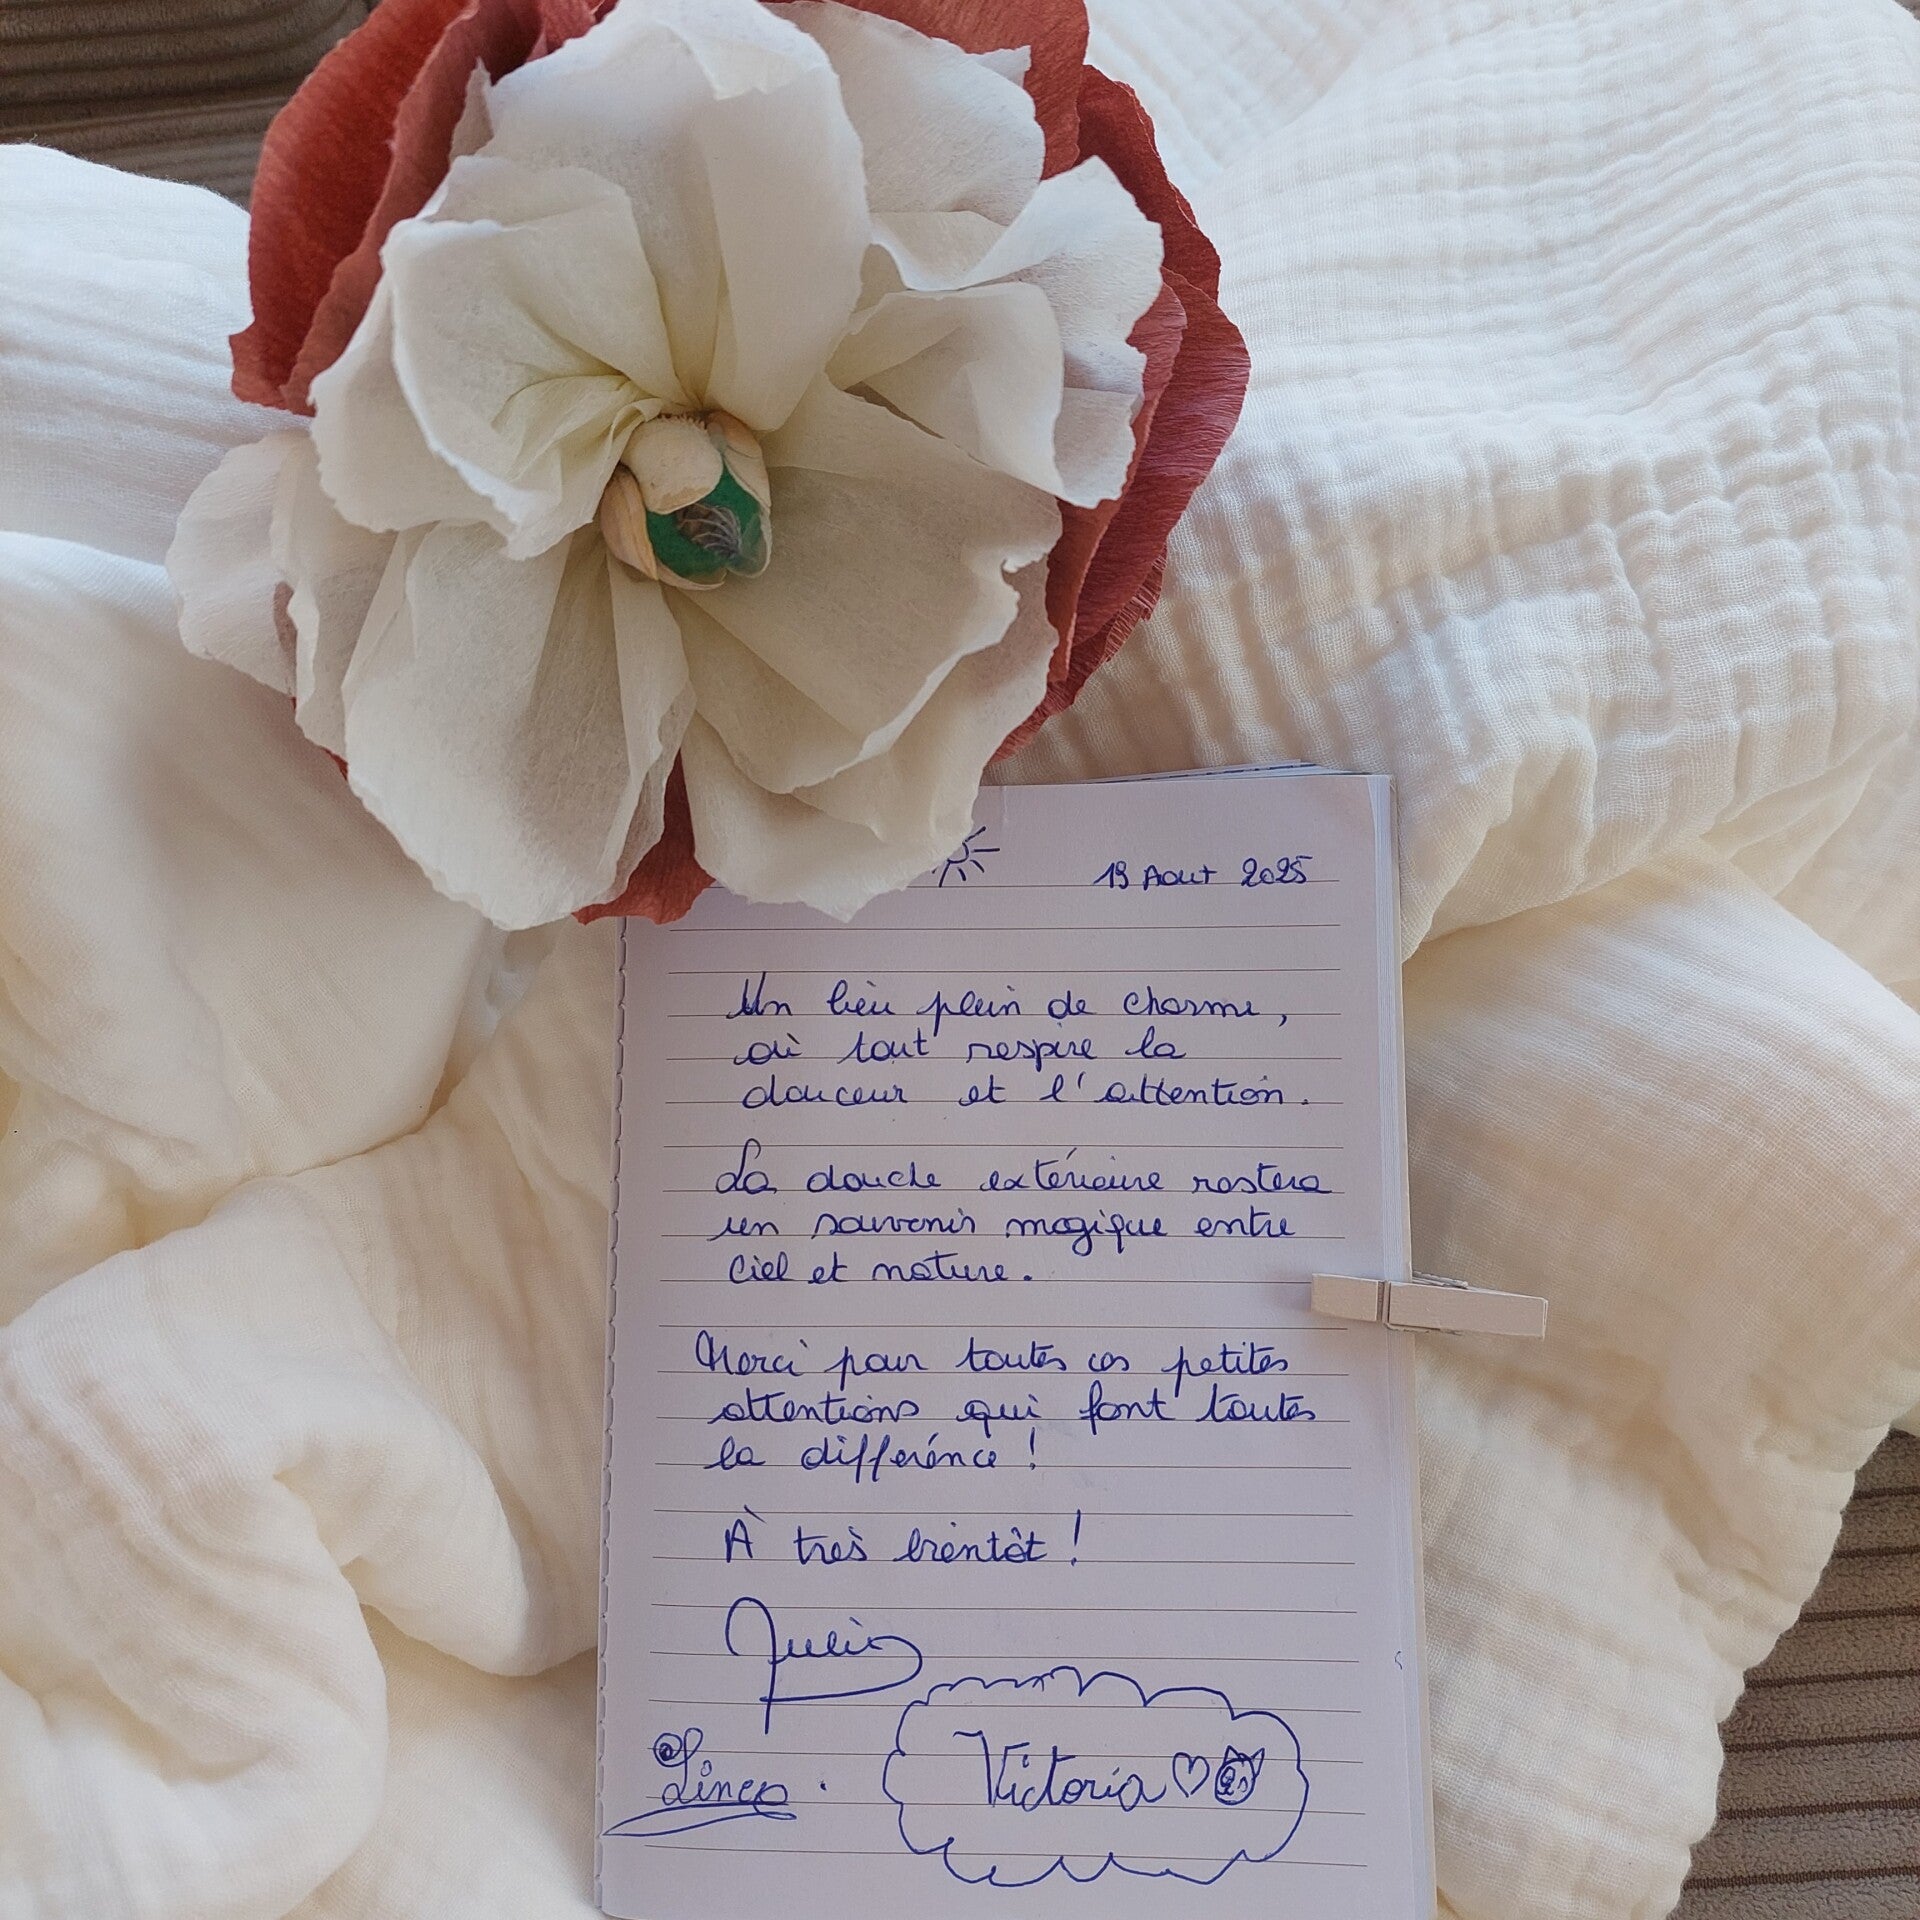 19 Aout 2025
Un lieu plein de charme,
où tout respire la
douceur et l'attention.
La douche extérieure restera
un souvenir magique entre
Ciel et nature.
Merci pour toutes ces petites
attentions qui font toutes
la différence !
À très bientôt !
Victoria